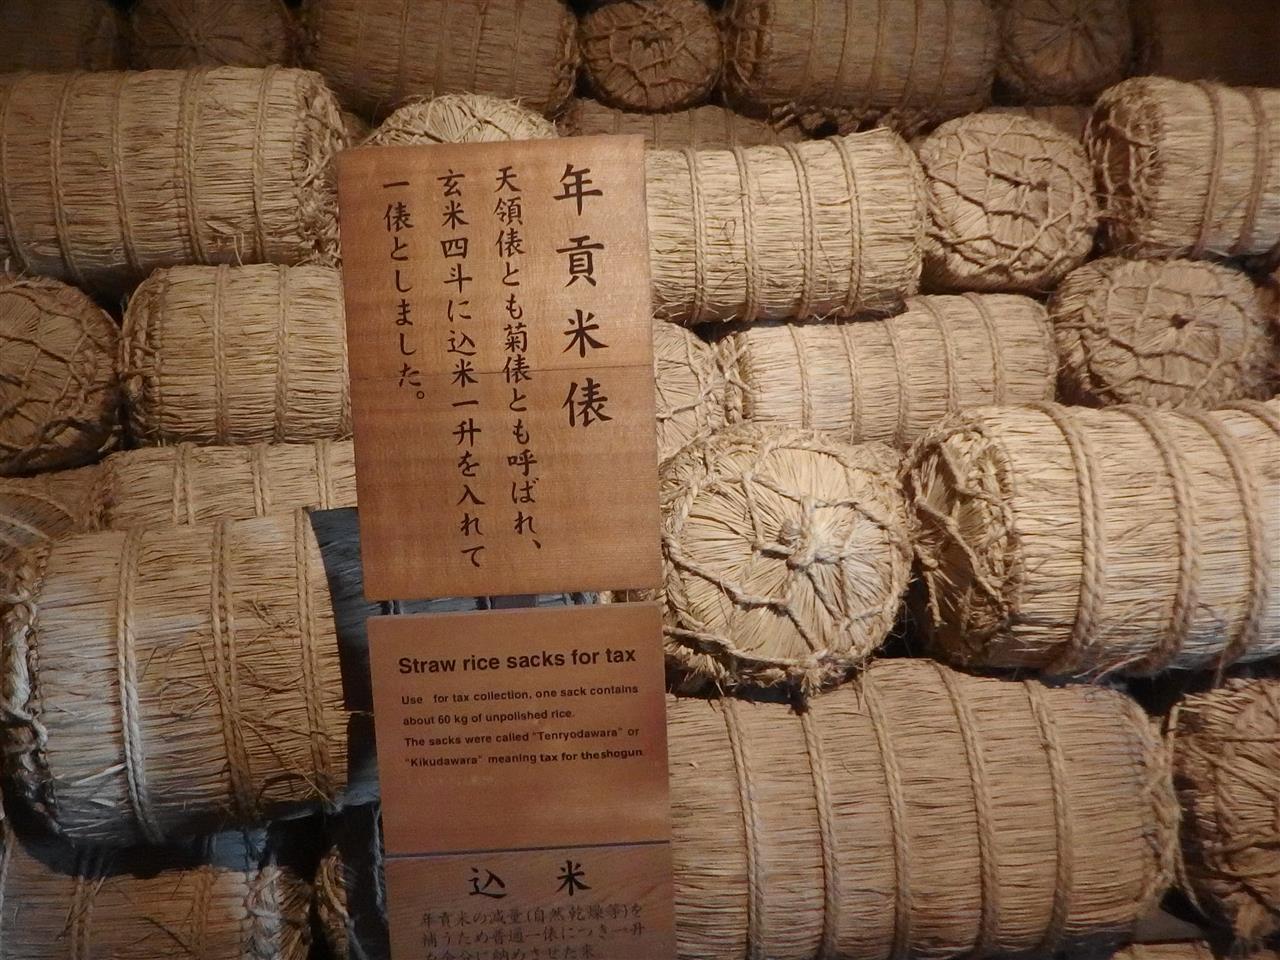 年貢米俵
天領俵とも菊俵とも呼ばれ、
玄米四斗に込米一升を入れて
一俵としました。
Straw rice sacks for tax
Use for tax collection, one sack contains
about 60 kg of unpolished rice.
The sacks were called "Tenryodawara" or
"Kikudawara" meaning tax for theshogun
込米
年貢米の減量(自然乾燥等)を
補うため普通一俵につき一升